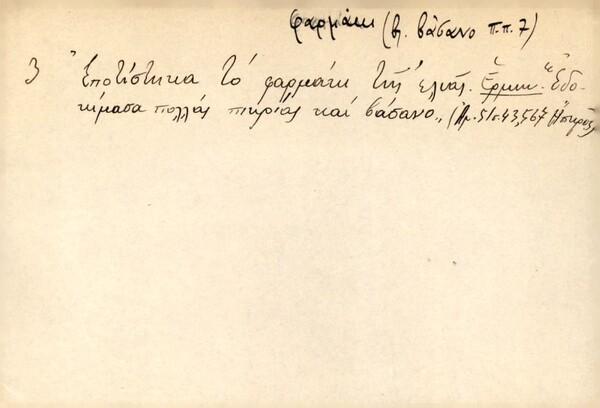 φαρμάκι (βλ. βάσανο π.π. 7)
3 Ἐποτίστηκα τὸ φαρμάκι τῆς ἐλιᾶς. Ἑρμην. "Ἐδο-
κίμασα πολλὲς πικρίες καὶ βάσανο„ (Λμ. 51σ. 43, 567 Ἤπειρος)